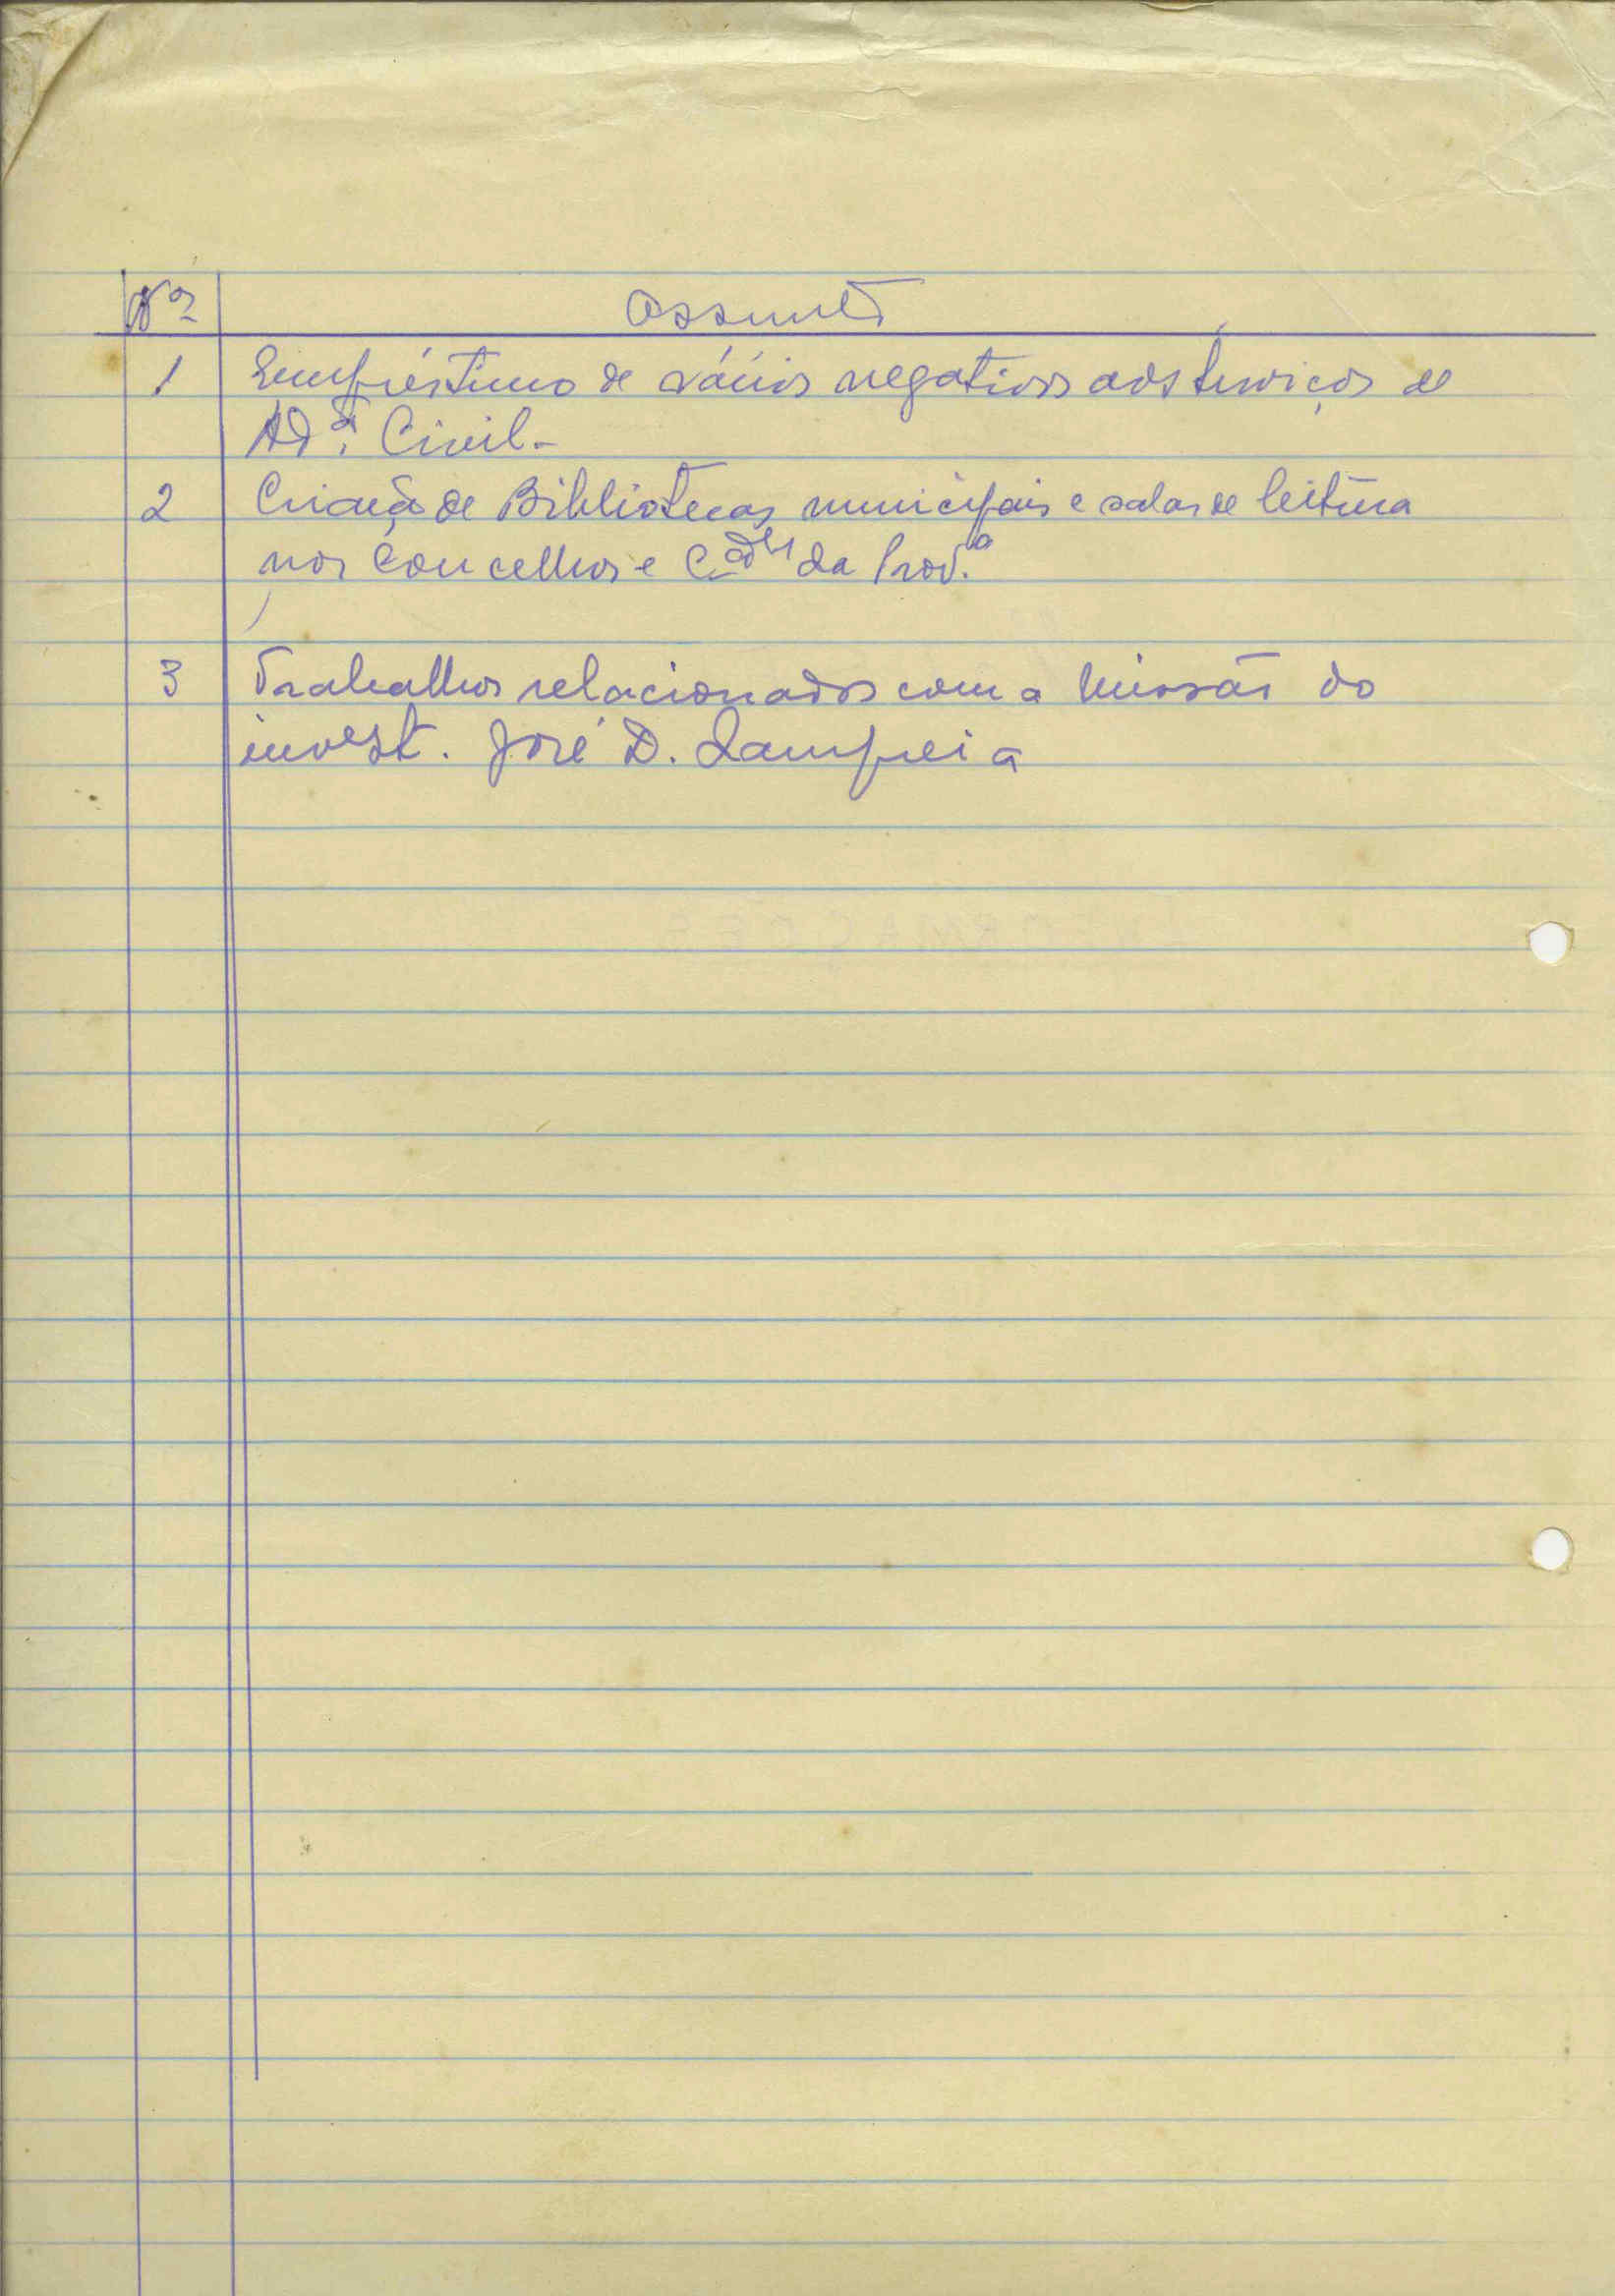 Nº Assunto
1 Empréstimo de vários negativos aos serviços de
Adª. Civil.
2 Criação de Bibliotecas municipais e salas de leitura
nos concelhos e da Prov.ª
3 Trabalhos relacionados com a missão do
invest. José D. Lampreia
INFORMAÇÕES